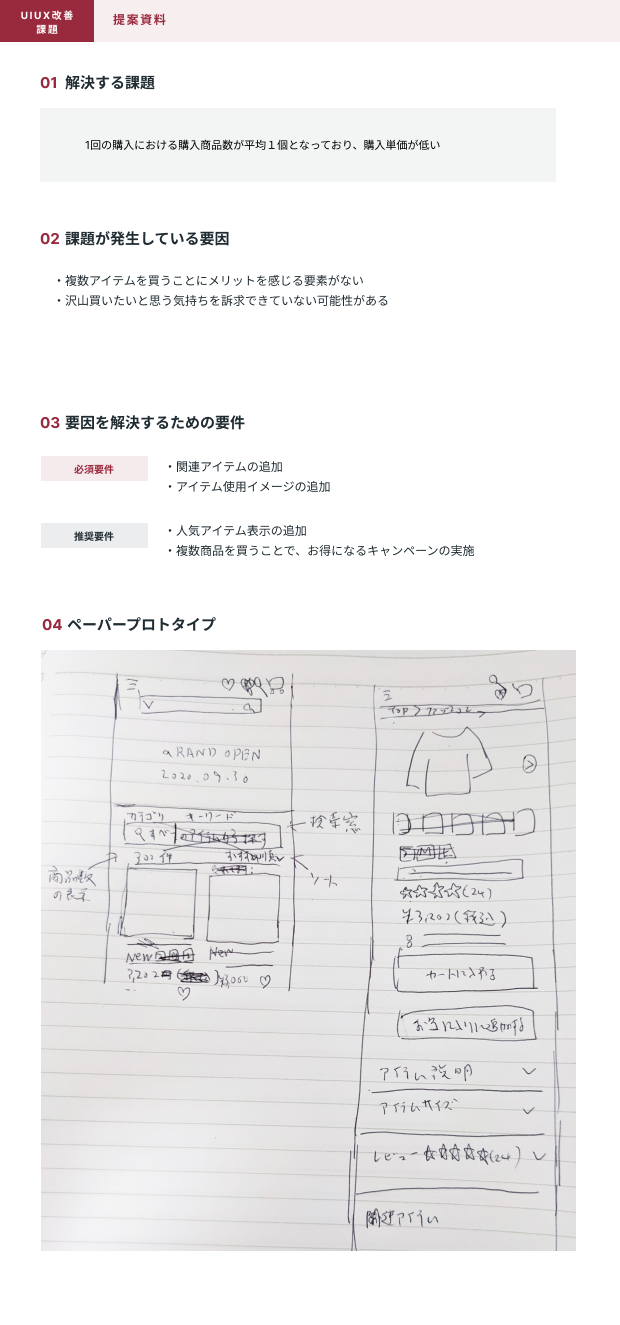 UIUX改善
課題
提案資料
01 解決する課題
1回の購入における購入商品数が平均１個となっており、購入単価が低い
02 課題が発生している要因
・複数アイテムを買うことにメリットを感じる要素がない
・沢山買いたいと思う気持ちを訴求できていない可能性がある
03 要因を解決するための要件
必須要件
・関連アイテムの追加
・アイテム使用イメージの追加
推奨要件
・人気アイテム表示の追加
・複数商品を買うことで、お得になるキャンペーンの実施
04 ペーパープロトタイプ
GRAND OPEN
2020.09.30
カテゴリ キーワード
すべて
検索窓
302件
おすすめ順
ソート
商品数
の表示
New
New
TOP >
☆☆☆☆(24)
¥3,202(税込)
カートに入れる
お気に入りに追加する
アイテム説明
アイテムサイズ
レビュー ☆☆☆☆☆(24)
関連アイテム